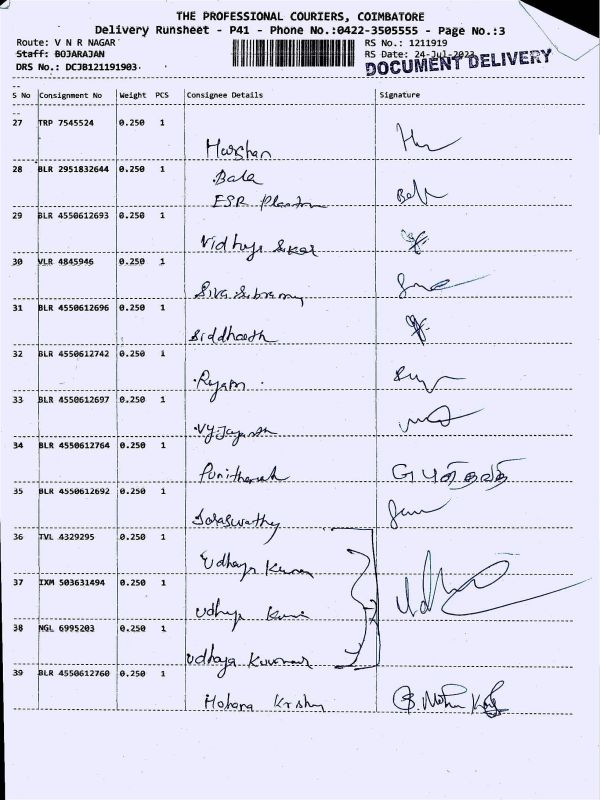 THE PROFESSIONAL COURIERS, COIMBATORE
Delivery Runsheet - P41 - Phone No.:0422-3505555 - Page No.:3
Route: V N R NAGAR RS No.: 1211919
Staff: BOJARAJAN RS Date: 24-Jul-2023
DRS No.: DCJB121191903 DOCUMENT DELIVERY
S No Consignment No Weight PCS Consignee Details Signature
27 TRP 7545524 0.250 1
Harshan
28 BLR 2951832644 0.250 1
Bala
ESR
29 BLR 4550612693 0.250 1
Vidhya
30 VLR 4845946 0.250 1
31 BLR 4550612696 0.250 1
Siddharth
32 BLR 4550612742 0.250 1
33 BLR 4550612697 0.250 1
34 BLR 4550612764 0.250 1
35 BLR 4550612692 0.250 1
Saraswathy
36 TVL 4329295 0.250 1
Udhaya Kumar
37 IXM 503631494 0.250 1
Udhaya
38 NGL 6995203 0.250 1
Udhaya Kumar
39 BLR 4550612760 0.250 1